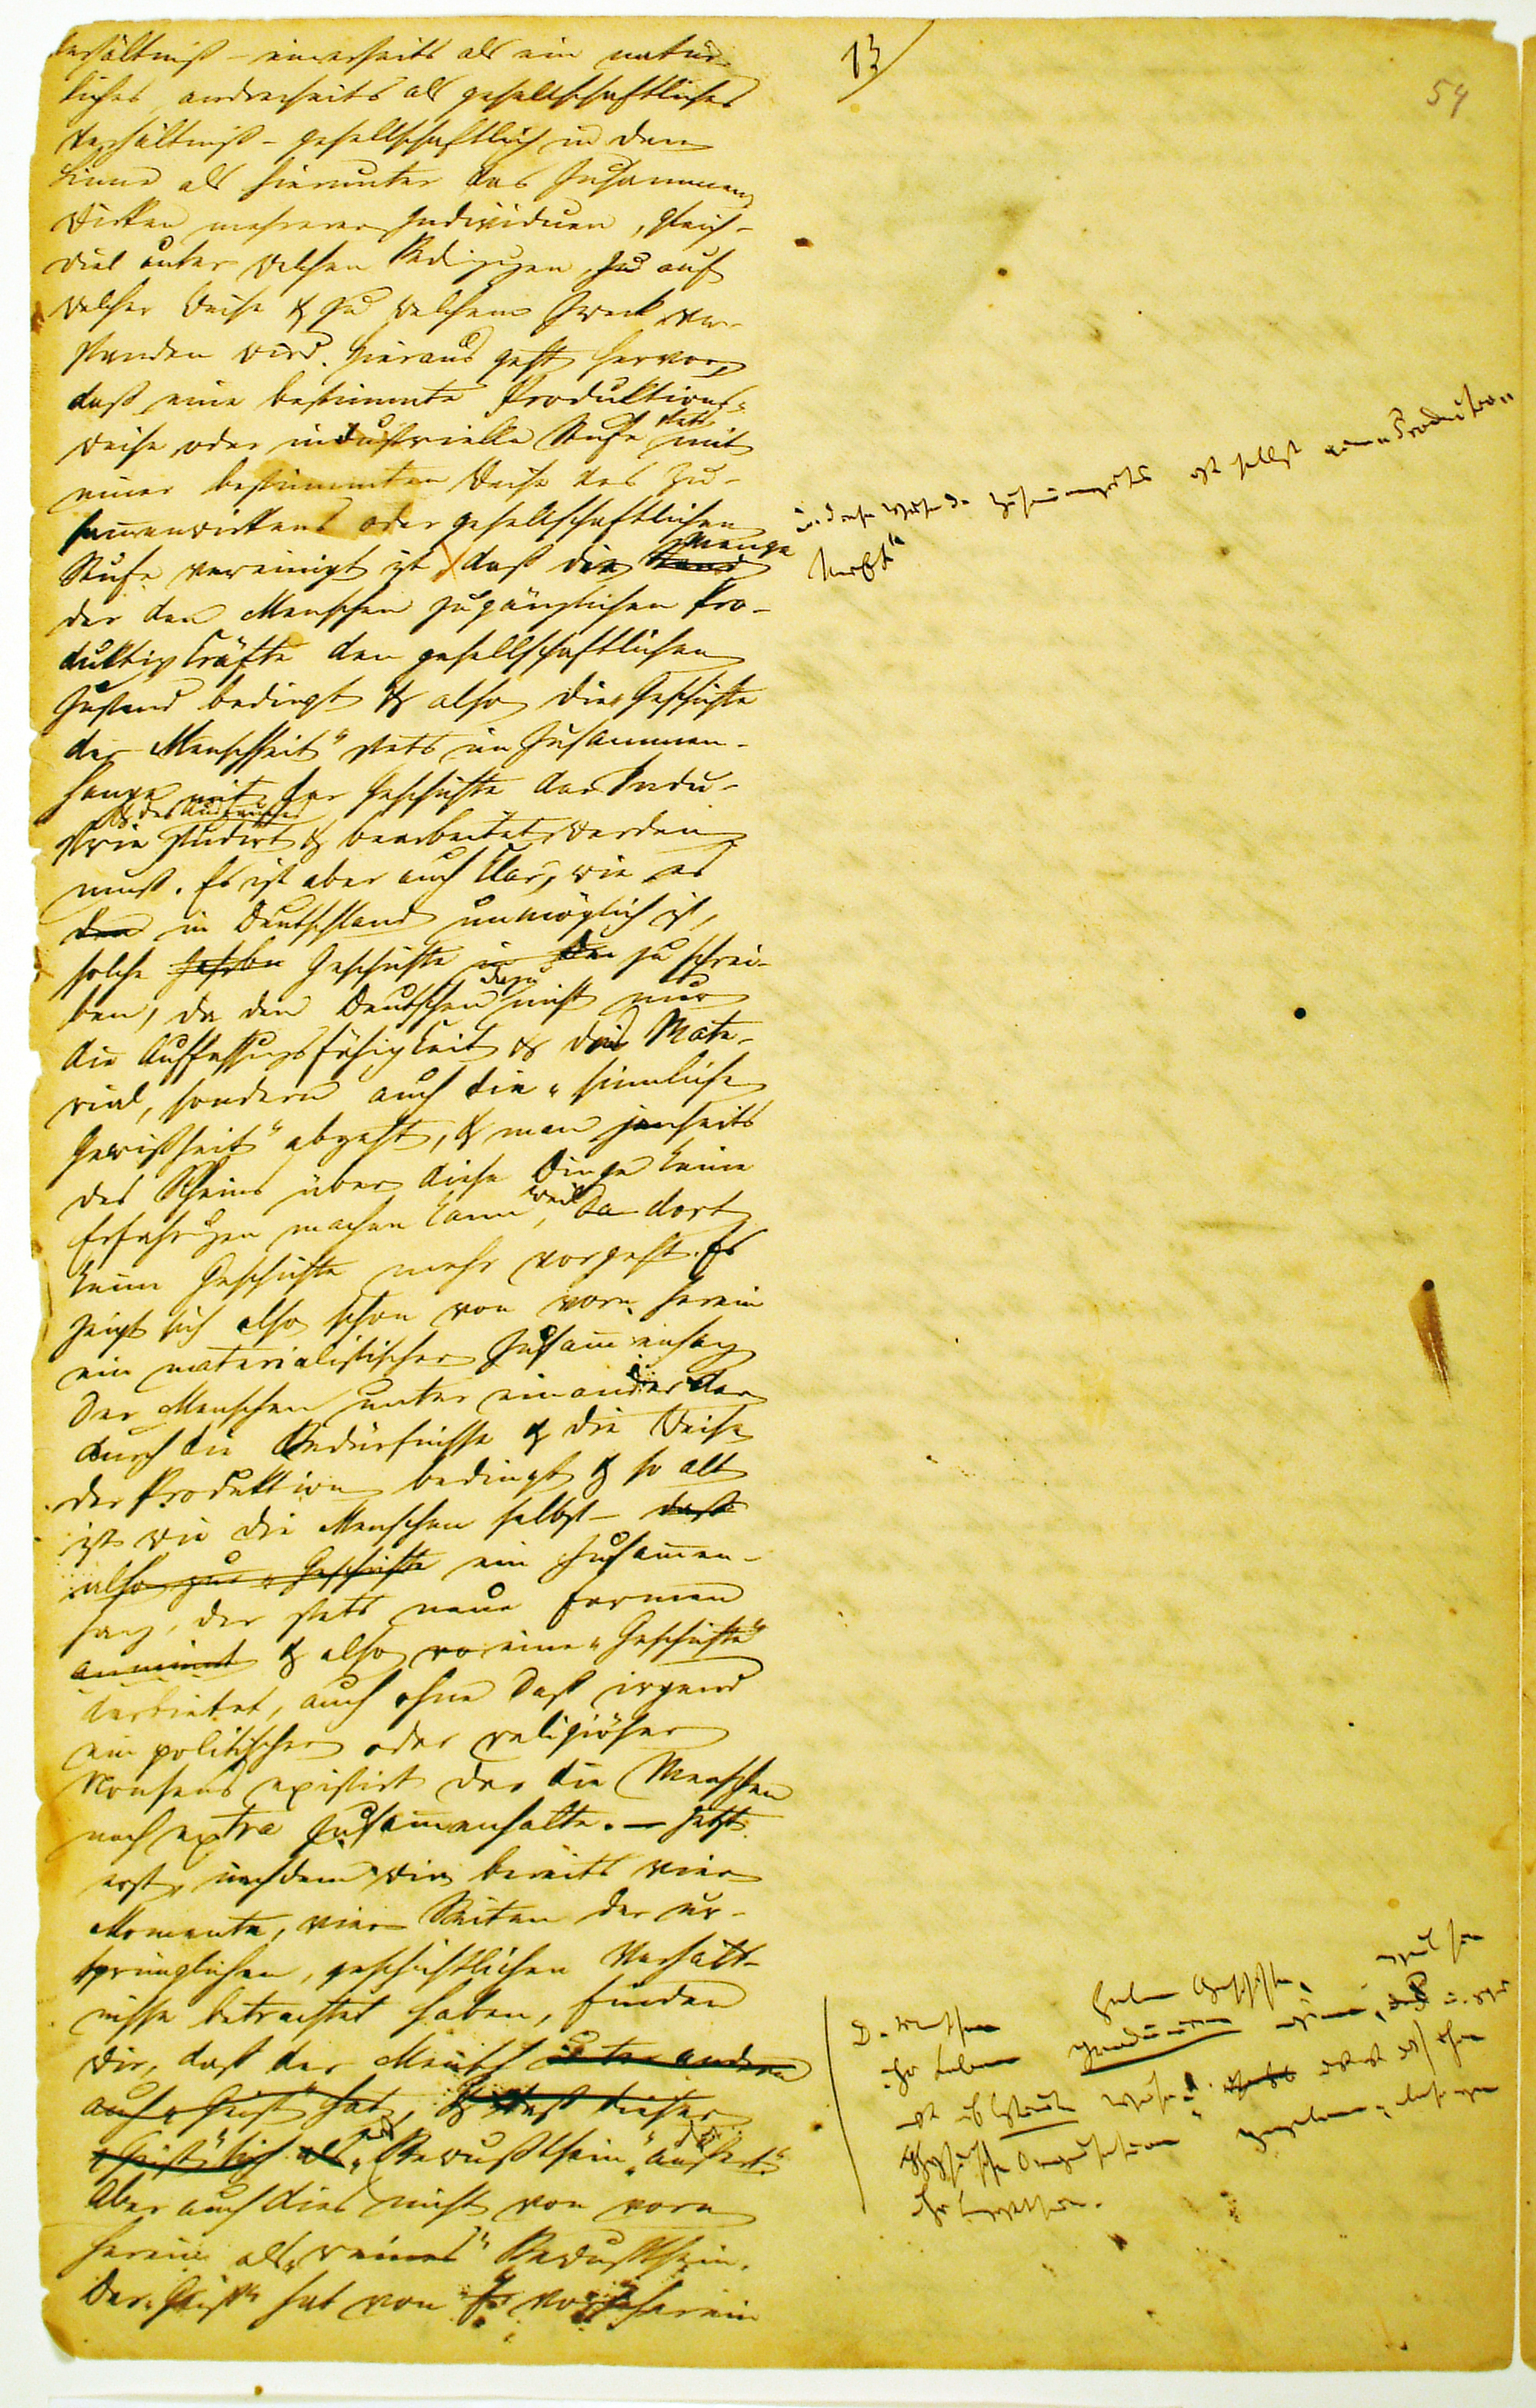 13)
54
Verhältniß – einerseits als ein natür-
liches, andrerseits als gesellschaftliches
Verhältniß – gesellschaftlich in dem
Sinne als hierunter das Zusammen-
wirken mehrerer Individuen, gleich-
viel unter welchen Bedingungen, auf
welcher Weise & zu welchem Zweck ver-
standen wird. Hieraus geht hervor,
daß eine bestimmte Produktions-
weise oder industrielle Stufe stets mit
einer bestimmten Weise des Zu-
sammenwirkens oder gesellschaftlichen
Stufe vereinigt ist, daß die Menge
der den Menschen zugänglichen Pro-
duktivkräfte den gesellschaftlichen
Zustand bedingt & also die „Geschichte
der Menschheit“ stets im Zusammen-
hange mit der Geschichte der Indu-
strie & des Austausches studirt & bearbeitet werden
muß. Es ist aber auch klar, wie es
in Deutschland unmöglich ist,
solche Geschichte zu schrei-
ben, da den Deutschen dazu nicht nur
die Auffassungsfähigkeit & das Mate-
rial, sondern auch die „sinnliche
Gewißheit“ abgeht, & man jenseits
des Rheins über diese Dinge keine
Erfahrungen machen kann, weil dort
keine Geschichte mehr vorgeht. Es
zeigt sich also schon von vorn herein
ein materialistischer Zusammenhang
der Menschen unter einander der
durch die Bedürfnisse & die Weise
der Produktion bedingt & so alt
ist wie die Menschen selbst – daß
also zur „Geschichte ein Zusammen-
hang, der stets neue Formen
annimmt & also eine „Geschichte“
darbietet, auch ohne daß irgend
ein politischer oder religiöser
Nonsens existirt der die Menschen
noch extra zusammenhalte. – Jetzt
erst, nachdem wir bereits vier
Momente, vier Seiten der ur-
sprünglichen, geschichtlichen Verhält-
nisse betrachtet haben, finden
wir, daß der Mensch unter andern
auch „Geist“ hat, & daß dieser
„Geist“ sich als „Bewußtsein“ äußert.
Aber auch dies nicht von vorn
herein als „reines“ Bewußtsein.
Der „Geist“ hat von vornherein
u. diese Weise des Zusammenwirkens ist selbst eine „Produktiv
kraft“
D. Menschen haben Geschichte, weil sie
ihr Leben produciren müssen, u. zwar
müssen auf bestimmte Weise: dies ist durch ihre
physische Organisation gegeben; ebenso wie
ihr Bewußtsein.